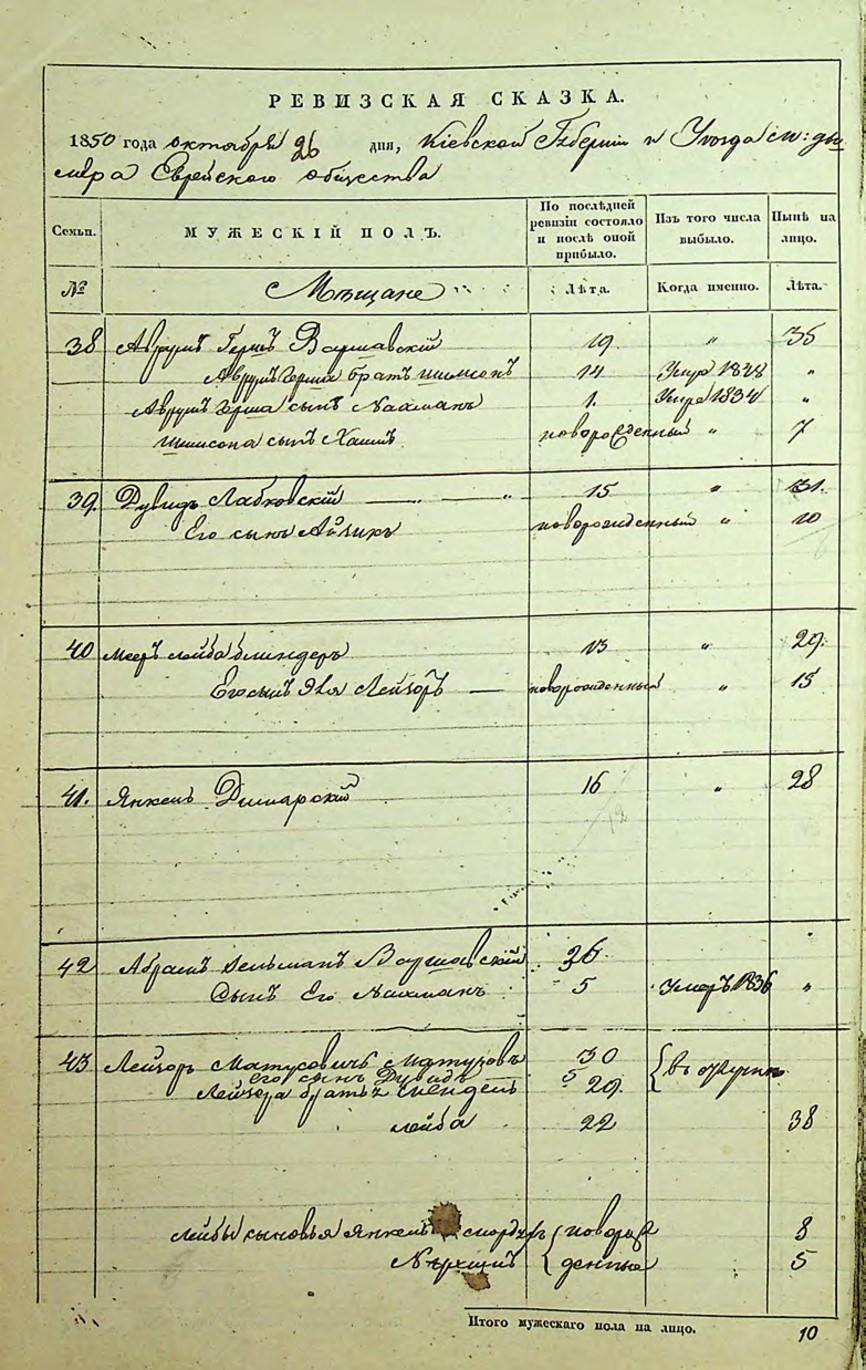 РЕВИЗСКАЯ СКАЗКА.
1850 года октября 26 дня, Кіевской Губерніи и Уезда м: ды
мера Еврейского общества
Семьи. МУЖЕСКІЙ ПОЛЪ. По послѣдней ревизіи состояло и послѣ оной прибыло. Изъ того числа выбыло. Нынѣ на лицо.
№ Мѣщане Лѣта. Когда именно. Лѣта.
38 Аврумъ Гершъ Варшавскій 19 " 35
Аврумъ Герша братъ Шимсонъ 14 Умеръ 1848 "
Аврумъ Герша сынъ Нахманъ 1. Умеръ 1834 "
Шимсона сынъ Хаимъ новорожденный " 7
39. Дувидъ Лабковскій 15 " 31.
Его сынъ Айзикъ новорожденный " 10
40 Мееръ Лейба Блиндеръ 13 " 29.
Его сынъ Эля Лейзоръ — новорожденный " 15
41. Янкель Дымарскій 16 " 28
42 Абрамъ Зельманъ Варшавскій 26.
Сынъ Его Нахманъ 5 Умеръ 1836 "
43 Лейзоръ Матусовичъ 30
Его сынъ Дувидъ 5
Лейзера братъ Мендель 29.
Лейба 22 38
Лейбы сыновья Янкель Мордхъ новорож 8
денные 5
Итого мужескаго пола на лицо. 10